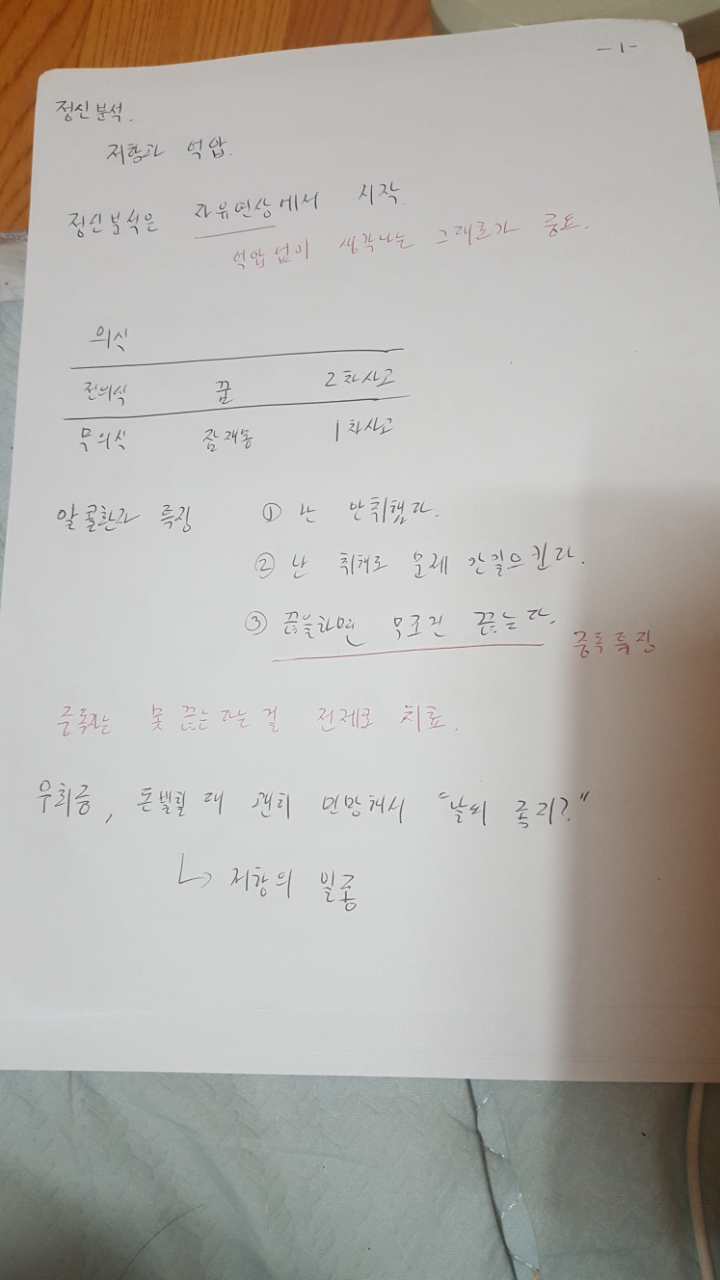 - 1 -
정신분석.
저항과 억압.
정신분석은 자유연상에서 시작.
억압없이 생각나는 그대로가 중요.
의식
전의식 꿈 2차사고
무의식 잠재몽 1차사고
알콜환자 특징 ① 난 안취했다.
② 난 취해도 문제 안일으킨다.
③ 끊을라면 무조건 끊는다. 중독특징
중독자는 못 끊는다는 걸 전제로 치료.
우회증, 돈빌릴 때 괜히 "날씨 좋지?"
↳ 저항의 일종